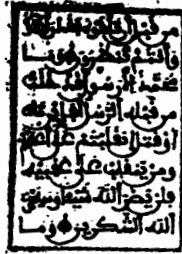 من قبل أن تلقوه فقد
وأنتم تنظرون وما
محمد إلا رسول قد خلت
من قبله الرسل أفإين
أو قتل انقلبتم على
ومن ينقلب على عقبيه
فلن يضر الله شيئا وسيجزي
الله الشكرين وما